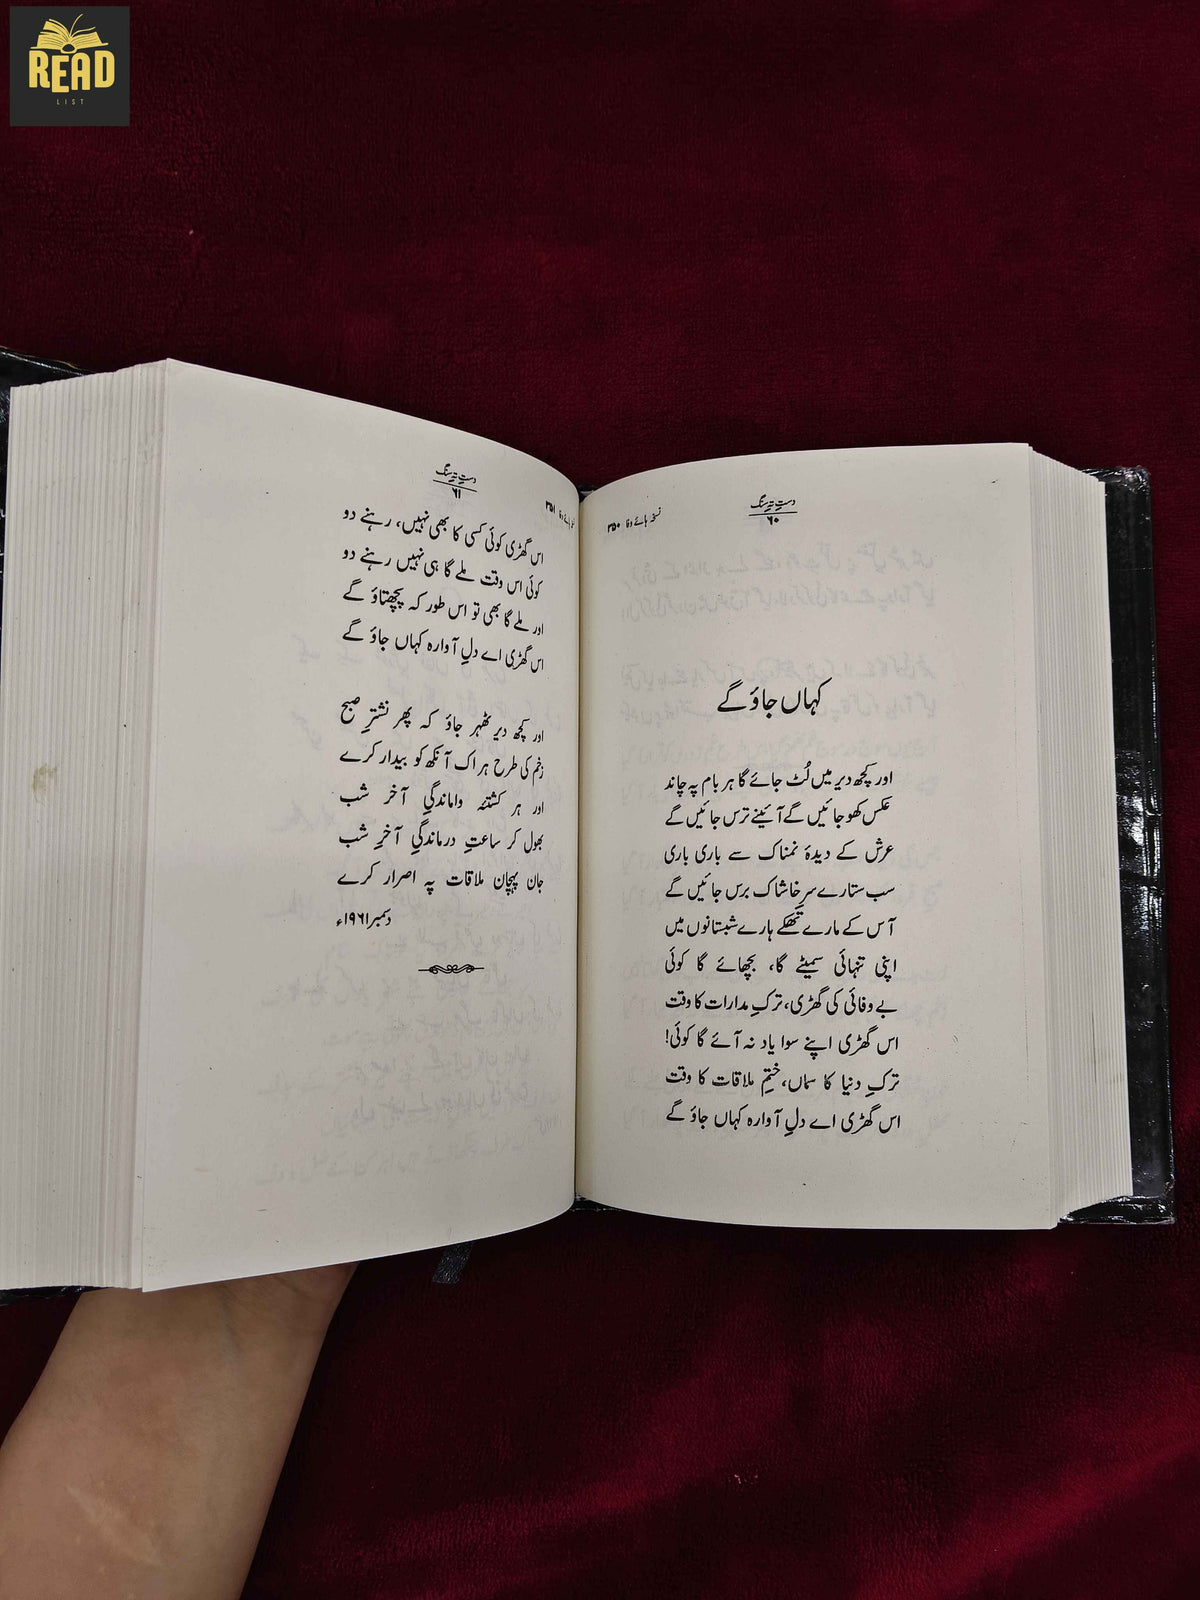 READ
LIST
نسخہ ہائے وفا ۳۵۰
دستِ تہِ سنگ
۶۰
کہاں جاؤ گے
اور کچھ دیر میں لُٹ جائے گا ہر بام پہ چاند
عکس کھو جائیں گے آئینے ترس جائیں گے
عرش کے دیدۂ نمناک سے باری باری
سب ستارے سرِ خاشاک برس جائیں گے
آس کے مارے تھکے ہارے شبستانوں میں
اپنی تنہائی سمیٹے گا، بچھائے گا کوئی
بے وفائی کی گھڑی، ترکِ مدارات کا وقت
اس گھڑی اپنے سوا یاد نہ آئے گا کوئی!
ترکِ دنیا کا سماں، ختمِ ملاقات کا وقت
اس گھڑی اے دلِ آوارہ کہاں جاؤ گے
نسخہ ہائے وفا ۳۵۱
دستِ تہِ سنگ
۶۱
اس گھڑی کوئی کسی کا بھی نہیں، رہنے دو
کوئی اس وقت ملے گا ہی نہیں رہنے دو
اور ملے گا بھی تو اس طور کہ پچھتاؤ گے
اس گھڑی اے دلِ آوارہ کہاں جاؤ گے
اور کچھ دیر ٹھہر جاؤ کہ پھر نشترِ صبح
زخم کی طرح ہر اک آنکھ کو بیدار کرے
اور ہر کشتۂ واماندگیِ آخرِ شب
بھول کر ساعتِ درماندگیِ آخرِ شب
جان پہچان ملاقات پہ اصرار کرے
دسمبر ۱۹۶۱ء